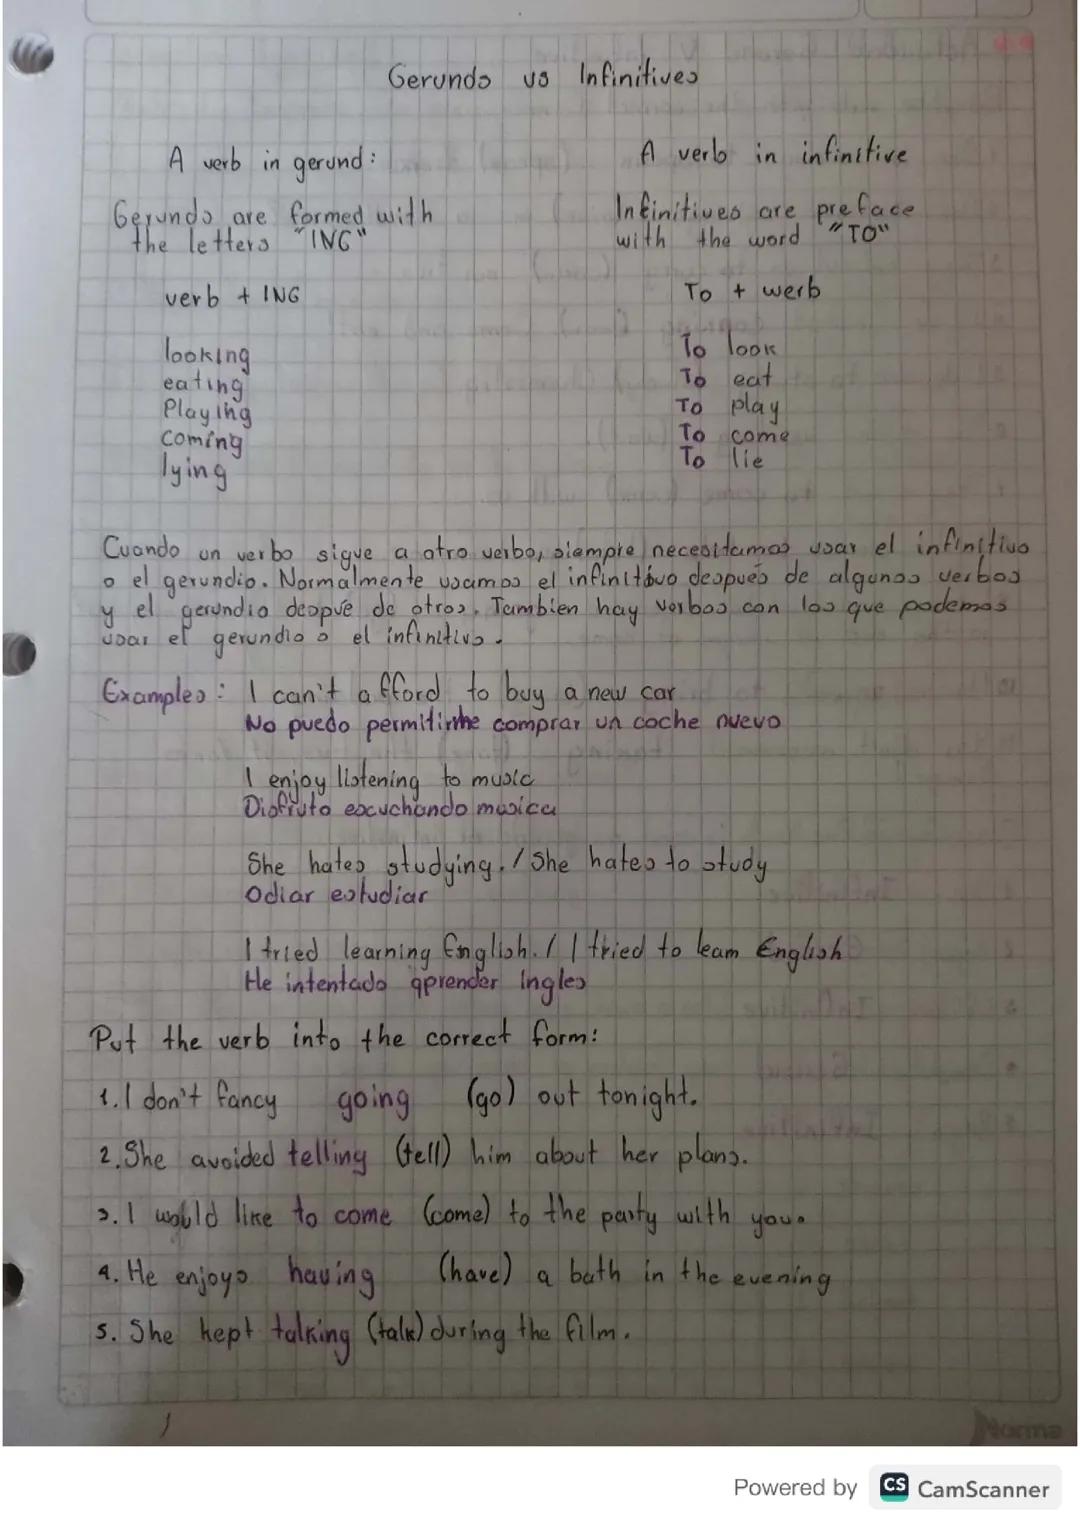 Gerunds vs Infinitives
A verb in gerund:
Gerunds are formed with
the letters "ING"
verb + ING
looking
eating
Playing
coming
lying
A verb in infinitive
Infinitives are preface
with the word "TO"
To + werb
To look
To eat
To play
To come
To lie
Cuando un verbo sigue a otro verbo, siempre necesitamos usar el infinitivo
o el gerundio. Normalmente usamos el infinitivo después de algunos verbos
y el gerundio despúe de otros. Tambien hay verbos con los que podemos
usar el gerundio o el infinitivo.
Examples: I can't afford to buy a new car
No puedo permitirme comprar un coche nuevo
I enjoy listening to music
Disfruto escuchando musica
She hates studying. / She hates to study
Odiar estudiar
I tried learning English. / I tried to learn English
He intentado aprender ingles
Put the verb into the correct form:
1. I don't fancy going (go) out tonight.
2. She avoided telling (tell) him about her plans.
3. I would like to come (come) to the party with you.
4. He enjoys having (have) a bath in the evening
5. She kept talking (talk) during the film.
Norma
Powered by CS CamScanner